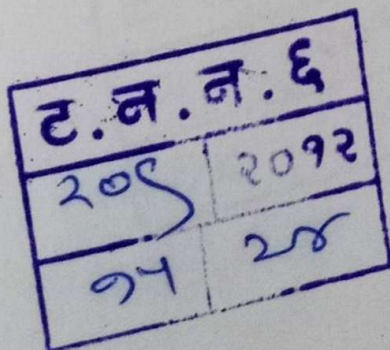 ट.न.न.६
२०९ २०१२
१५ २४